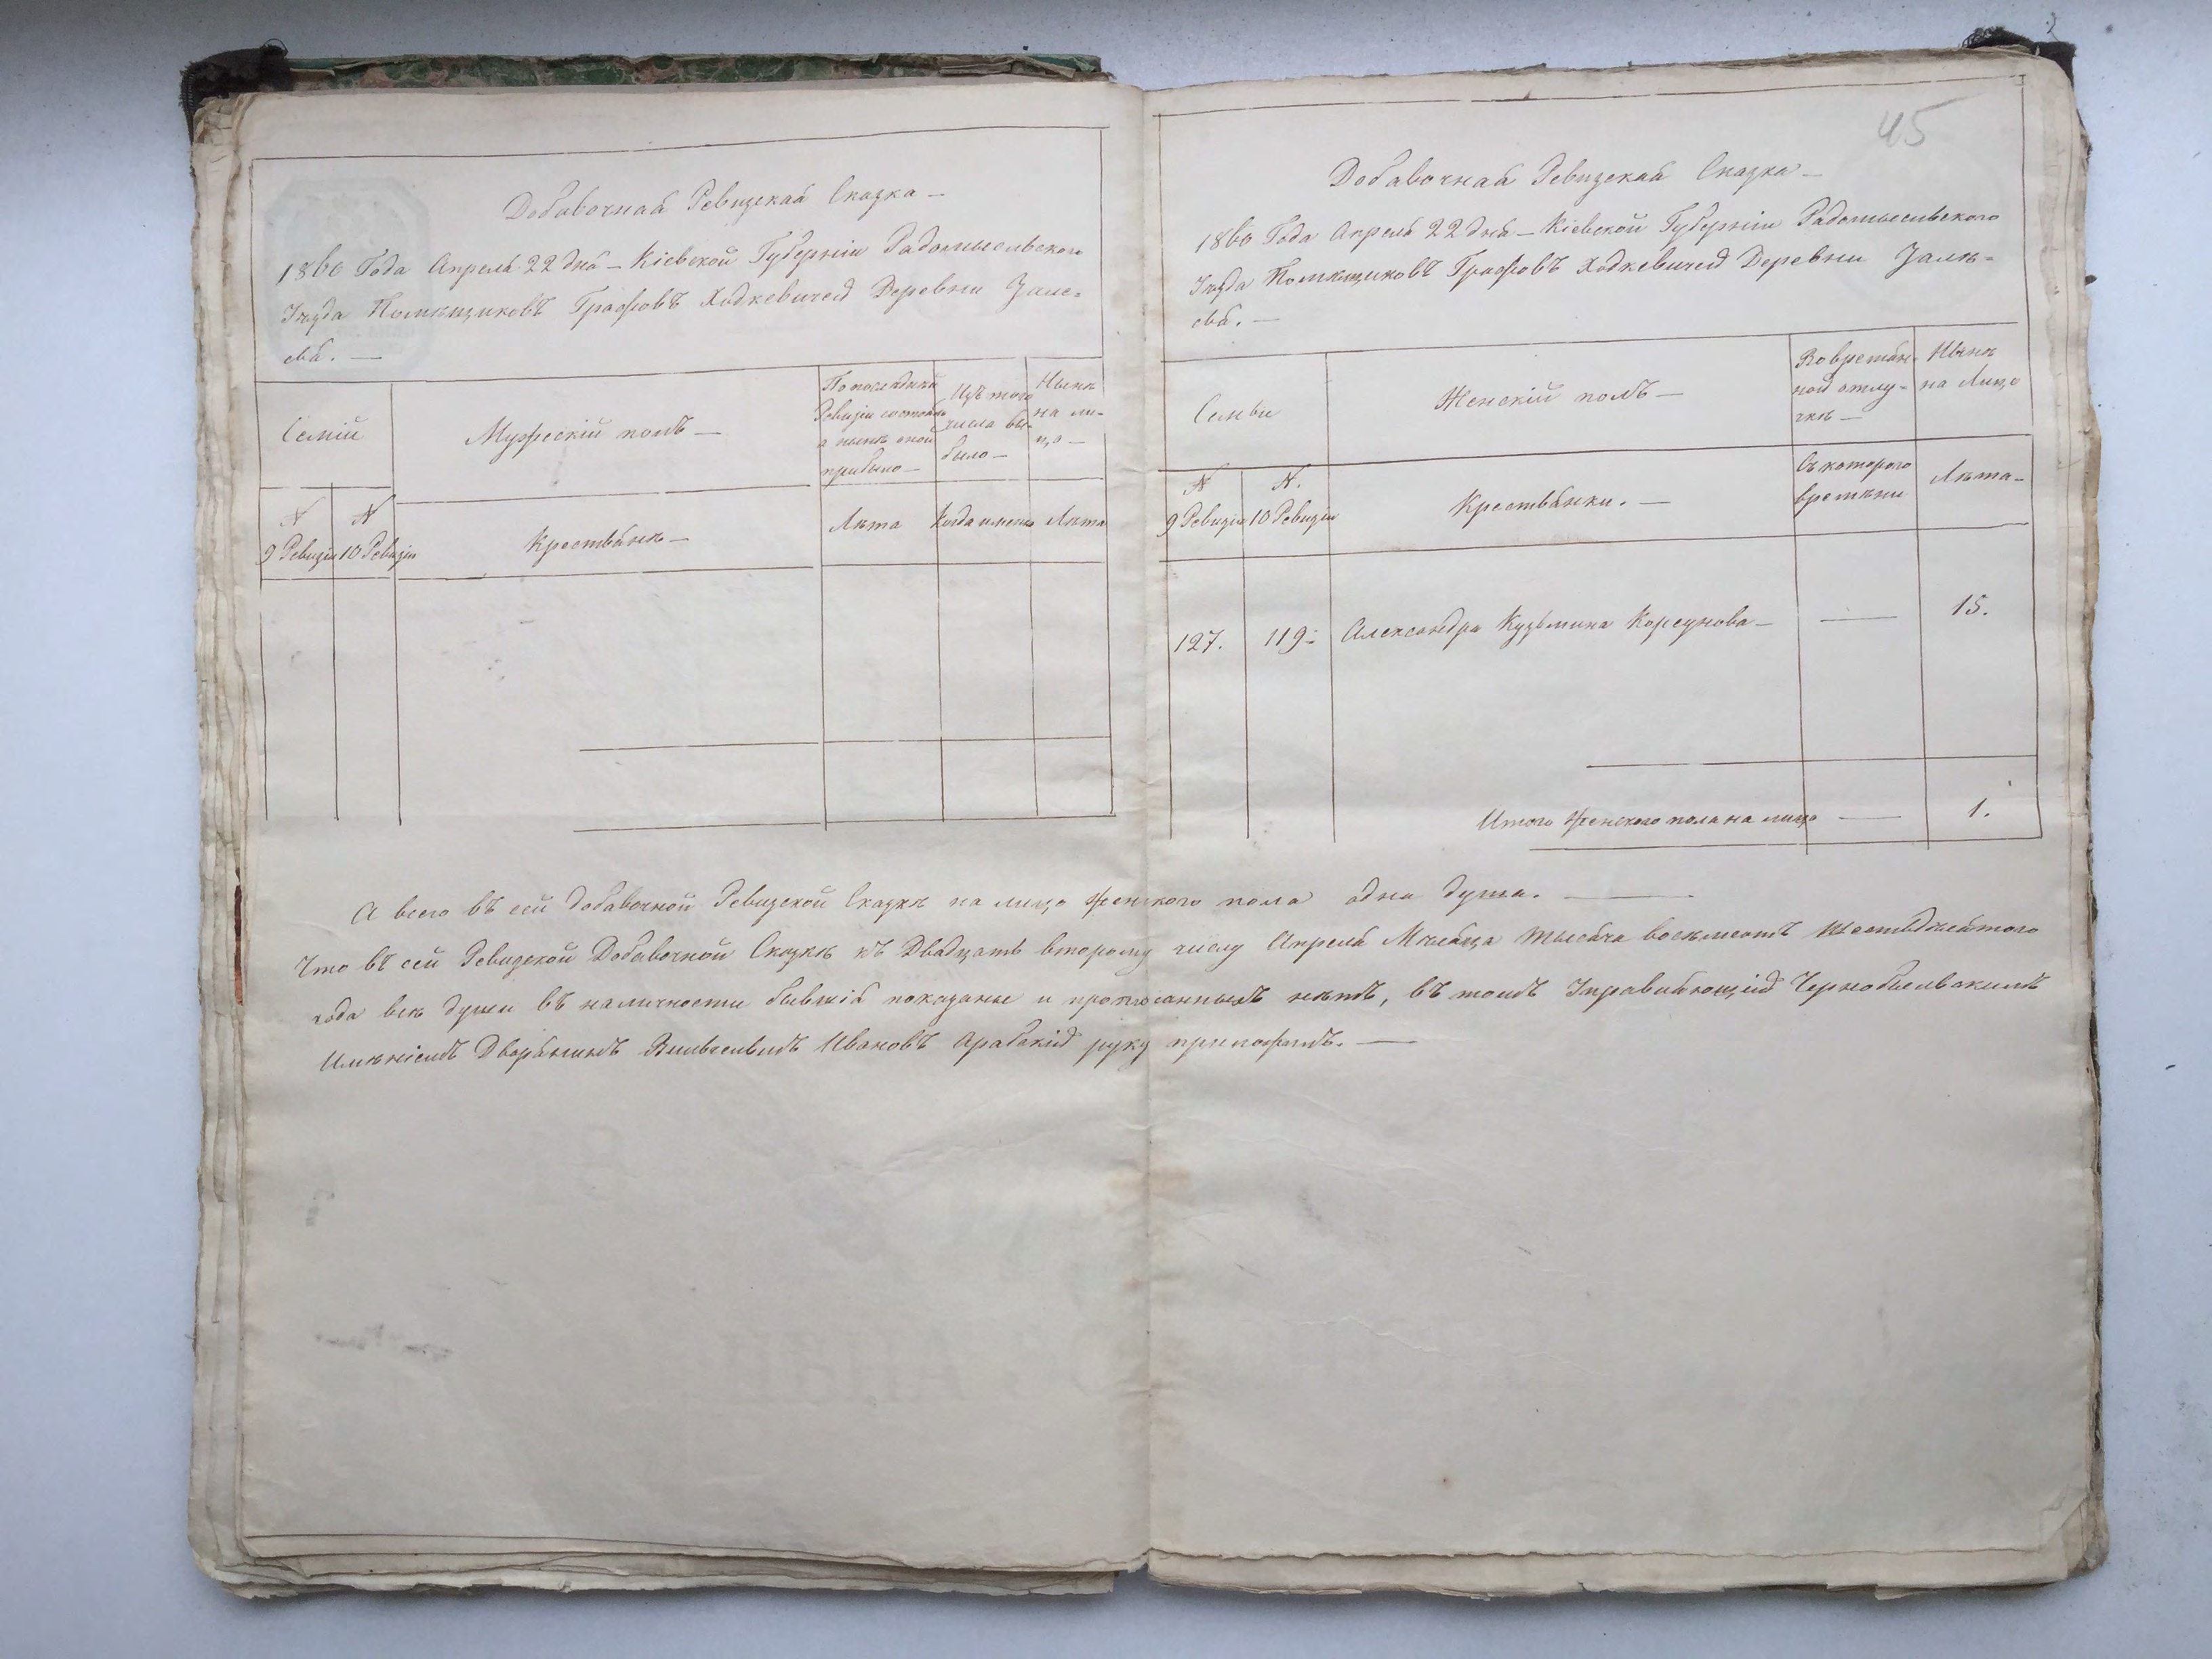 Добавочная Ревизская Сказка —
1860 Года Апреля 22 дня — Кіевской Губерніи Радомысльского
Уезда Помѣщиковъ Графовъ Ходкевичей Деревни Залѣ=
сья. —
Семій
Мужескій полъ —
По последней
Ревизіи состояло
а нынѣ оной
прибыло —
Изъ того
числа вы-
было —
Нынѣ
на ли-
цо —
№
9 Ревизіи
№
10 Ревизіи
Крестьянѣ —
Лѣта
Когда именно
Лѣта
45
Добавочная Ревизская Сказка —
1860 Года Апреля 22 дня — Кіевской Губерніи Радомысльского
Уезда Помѣщиковъ Графовъ Ходкевичей Деревни Залѣ=
сья. —
Семьи
Женскій полъ —
Во времѧн-
ной отлу=
чкѣ —
Нынѣ
на Лицо
№
9 Ревизіи
№.
10 Ревизіи
Крестьянки. —
Съ которого
времѣни
Лѣта —
127. 119. Александра Кузьмина Корсунова — — 15.
Итого женского пола на лицо — 1.
А всего въ сей добавочной Ревизской Сказкѣ на лицо женского пола одна душа. —
Что въ сей Ревизской Добавочной Сказкѣ къ Двадцать второму числу Апреля Мѣсяца тысяча восѣмсотъ шестьдесятого
года всѣ души въ наличности бывшія показаны и прописанныхъ нѣтъ, въ томъ Управляющій Чернобыльскимъ
Имѣніемъ Дворянинъ Вильгельмъ Ивановъ Арабскій руку приложилъ. —